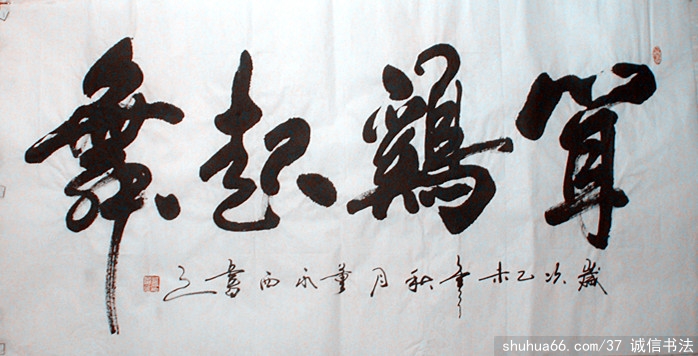 聞鷄起舞
歲次乙未年秋月董永西書之
shuhua66.com/37 诚信书法